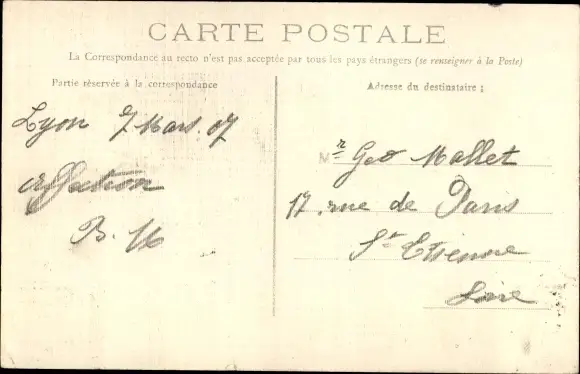 CARTE POSTALE
La Correspondance au recto n'est pas acceptée par tous les pays étrangers (se renseigner à la Poste)
Partie réservée à la correspondance
Lyon 7 Mars 07
affection
B. M
Adresse du destinataire :
Mr Geo Mallet
17, rue de Paris
St Etienne
Loire